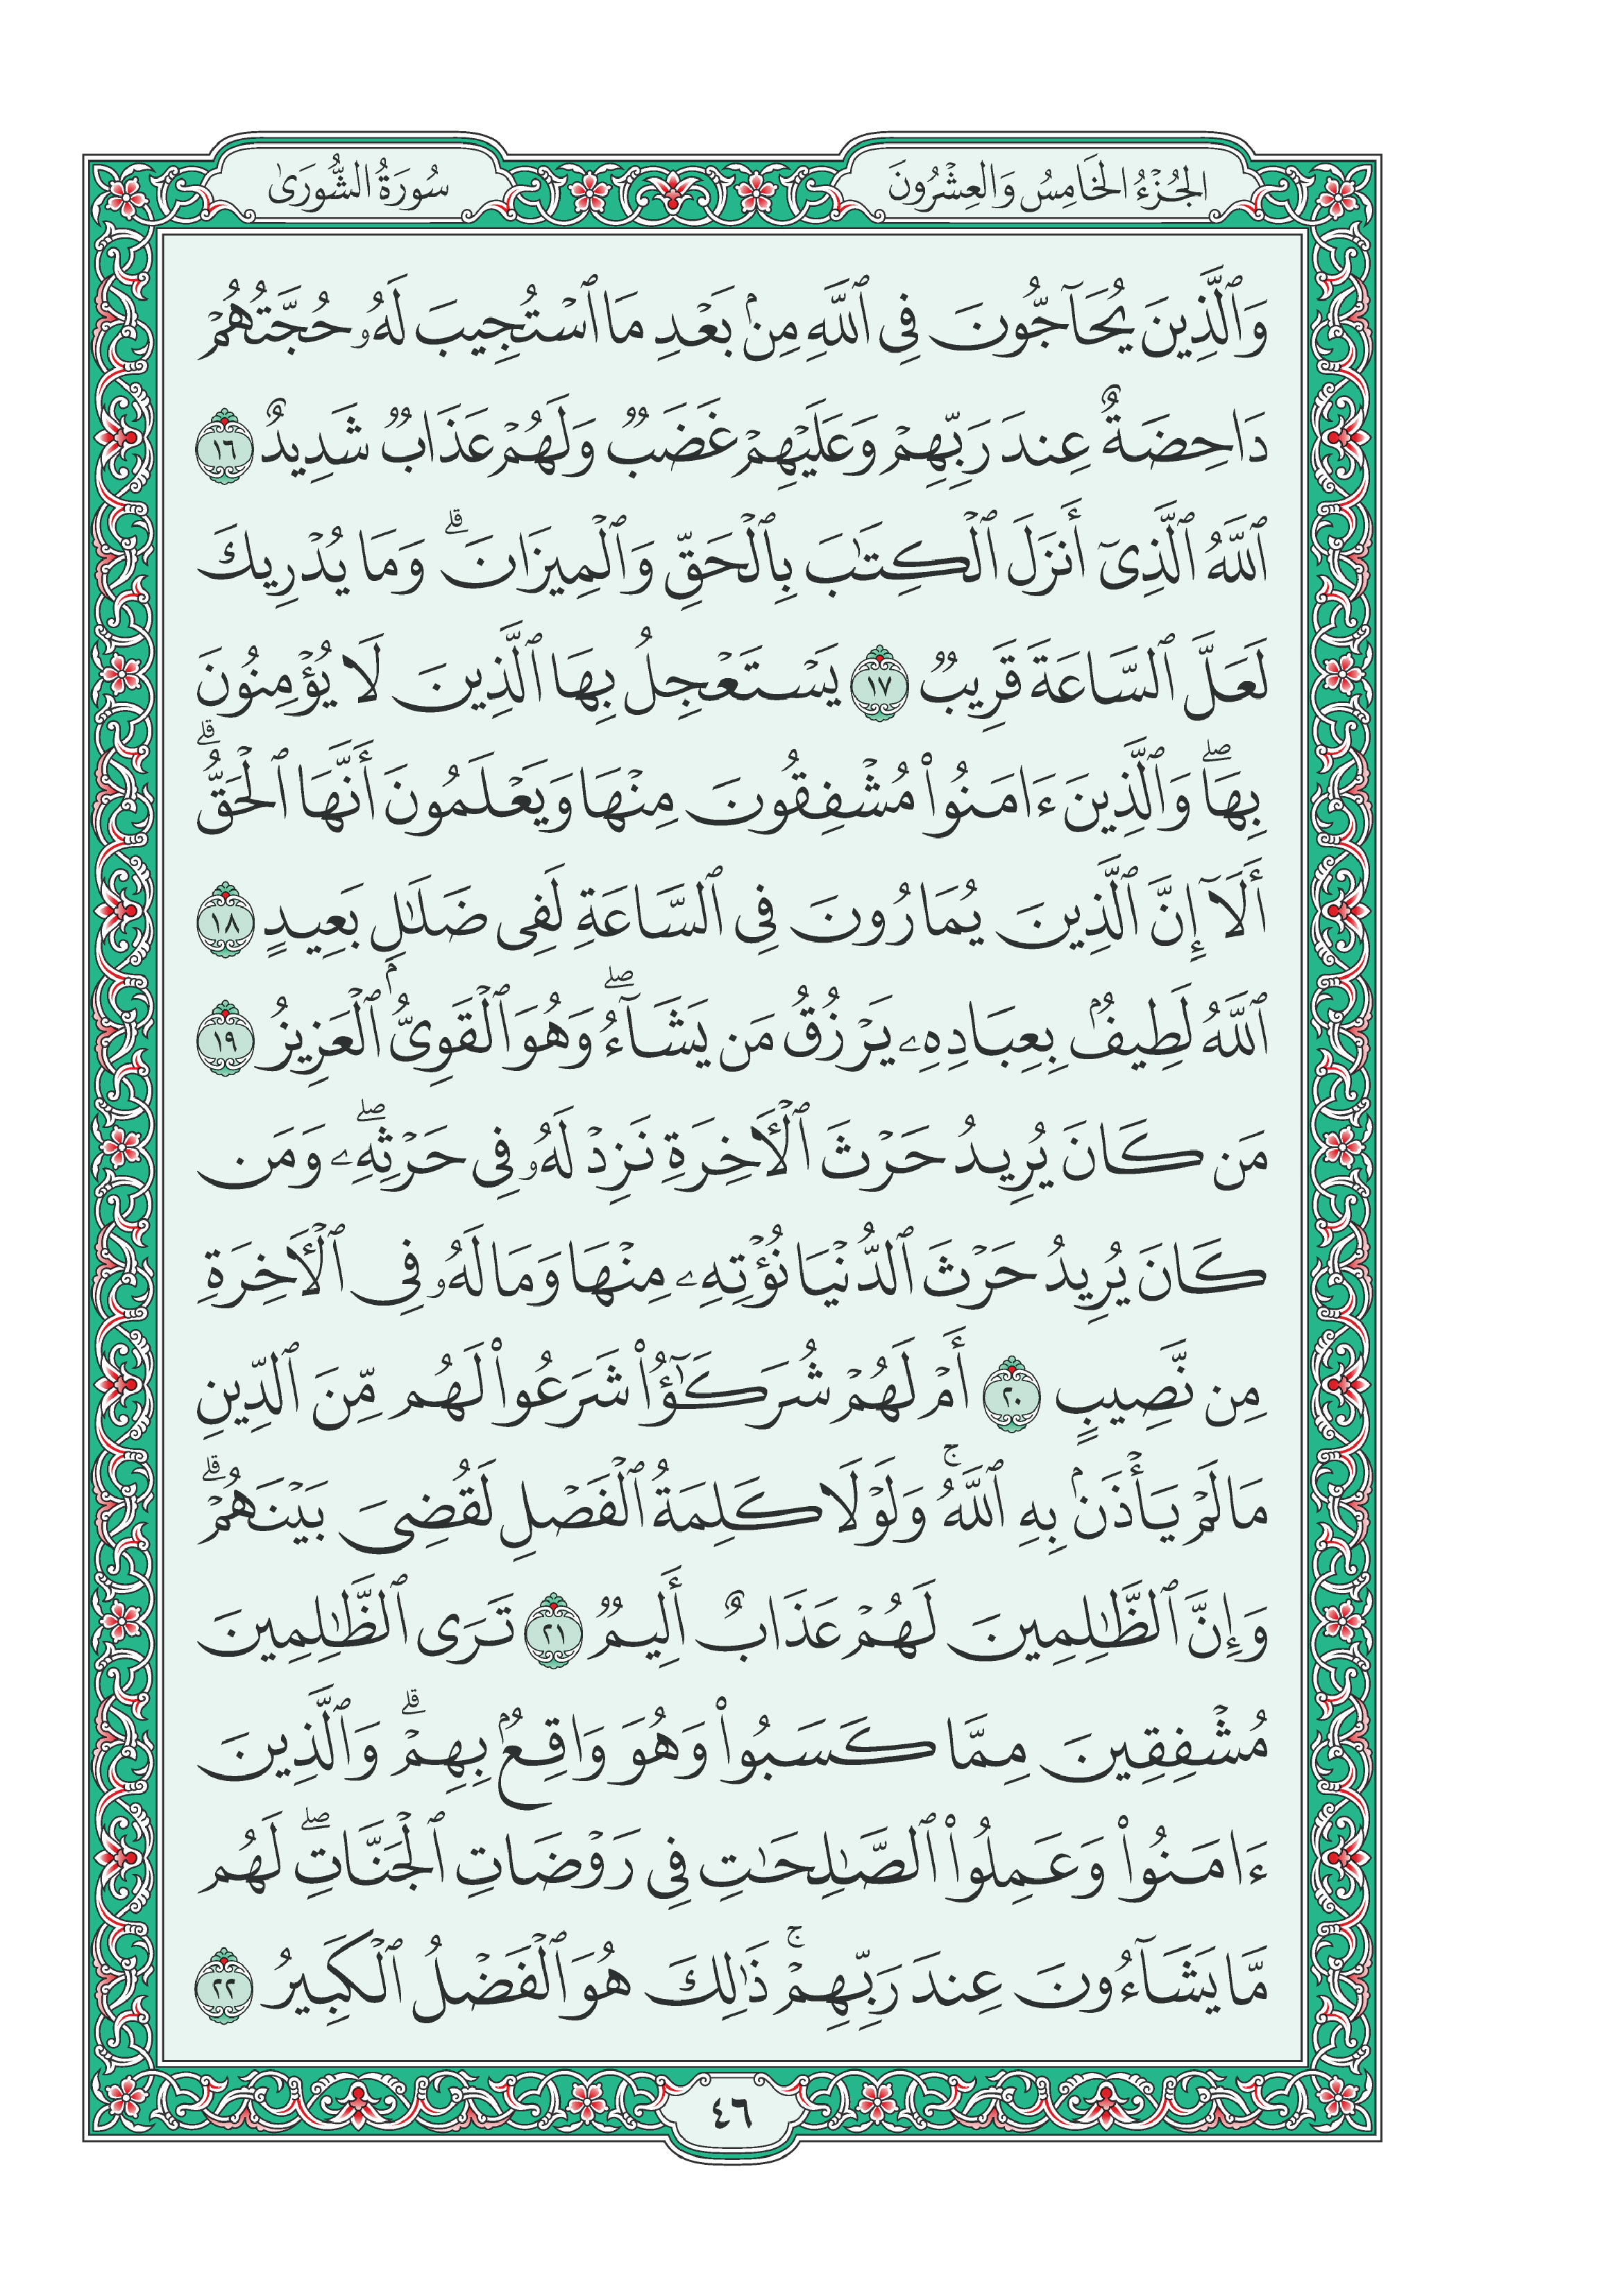 الجُزْءُ الخَامِسُ وَالعِشْرُونَ
سُورَةُ الشُّورَىٰ
وَٱلَّذِينَ يُحَآجُّونَ فِى ٱللَّهِ مِنۢ بَعْدِ مَا ٱسْتُجِيبَ لَهُۥ حُجَّتُهُمْ
دَاحِضَةٌ عِندَ رَبِّهِمْ وَعَلَيْهِمْ غَضَبٌ وَلَهُمْ عَذَابٌ شَدِيدٌ ١٦
ٱللَّهُ ٱلَّذِىٓ أَنزَلَ ٱلْكِتَٰبَ بِٱلْحَقِّ وَٱلْمِيزَانَ ۗ وَمَا يُدْرِيكَ
لَعَلَّ ٱلسَّاعَةَ قَرِيبٌ ١٧ يَسْتَعْجِلُ بِهَا ٱلَّذِينَ لَا يُؤْمِنُونَ
بِهَا ۖ وَٱلَّذِينَ ءَامَنُوا۟ مُشْفِقُونَ مِنْهَا وَيَعْلَمُونَ أَنَّهَا ٱلْحَقُّ ۗ
أَلَآ إِنَّ ٱلَّذِينَ يُمَارُونَ فِى ٱلسَّاعَةِ لَفِى ضَلَٰلٍ بَعِيدٍ ١٨
ٱللَّهُ لَطِيفٌۢ بِعِبَادِهِۦ يَرْزُقُ مَن يَشَآءُ ۖ وَهُوَ ٱلْقَوِىُّ ٱلْعَزِيزُ ١٩
مَن كَانَ يُرِيدُ حَرْثَ ٱلْءَاخِرَةِ نَزِدْ لَهُۥ فِى حَرْثِهِۦ ۖ وَمَن
كَانَ يُرِيدُ حَرْثَ ٱلدُّنْيَا نُؤْتِهِۦ مِنْهَا وَمَا لَهُۥ فِى ٱلْءَاخِرَةِ
مِن نَّصِيبٍ ٢٠ أَمْ لَهُمْ شُرَكَٰٓؤُا۟ شَرَعُوا۟ لَهُم مِّنَ ٱلدِّينِ
مَا لَمْ يَأْذَنۢ بِهِ ٱللَّهُ ۚ وَلَوْلَا كَلِمَةُ ٱلْفَصْلِ لَقُضِىَ بَيْنَهُمْ ۗ
وَإِنَّ ٱلظَّٰلِمِينَ لَهُمْ عَذَابٌ أَلِيمٌ ٢١ تَرَى ٱلظَّٰلِمِينَ
مُشْفِقِينَ مِمَّا كَسَبُوا۟ وَهُوَ وَاقِعٌۢ بِهِمْ ۗ وَٱلَّذِينَ
ءَامَنُوا۟ وَعَمِلُوا۟ ٱلصَّٰلِحَٰتِ فِى رَوْضَاتِ ٱلْجَنَّاتِ ۖ لَهُم
مَّا يَشَآءُونَ عِندَ رَبِّهِمْ ۚ ذَٰلِكَ هُوَ ٱلْفَضْلُ ٱلْكَبِيرُ ٢٢
٤٦